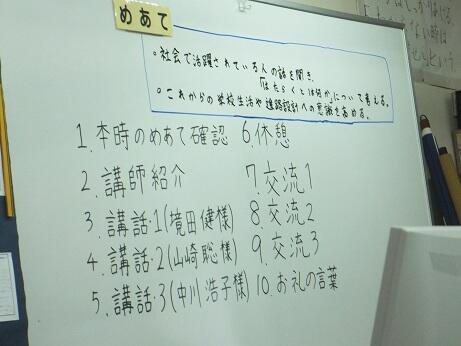 めあて
・社会で活躍されている人の話を聞き、
「はたらくとは何か」について考える。
・これからの学校生活や進路設計への意識を高める。
1.本時のめあて確認
2.講師紹介
3.講話・1(境田健様)
4.講話・2(山崎聡様)
5.講話・3(中川浩子様)
6.休憩
7.交流1
8.交流2
9.交流3
10.お礼の言葉